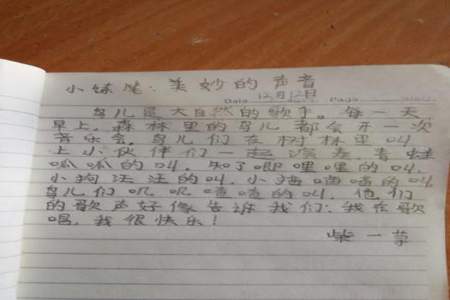 小练笔：美妙的声音
Date 12月12日 Page
鸟儿是大自然的歌手。每一天
早上，森林里的鸟儿都会开一次
音乐会，鸟儿们在树林里叫
小小伙伴们一起
呱呱的叫，知了即哩哩的叫，
小狗汪汪的叫，小猫喵喵的叫
鸟儿们叽叽喳喳的叫，他们
的歌声好像告诉我们：我在歌
唱，我很快乐！
柴一